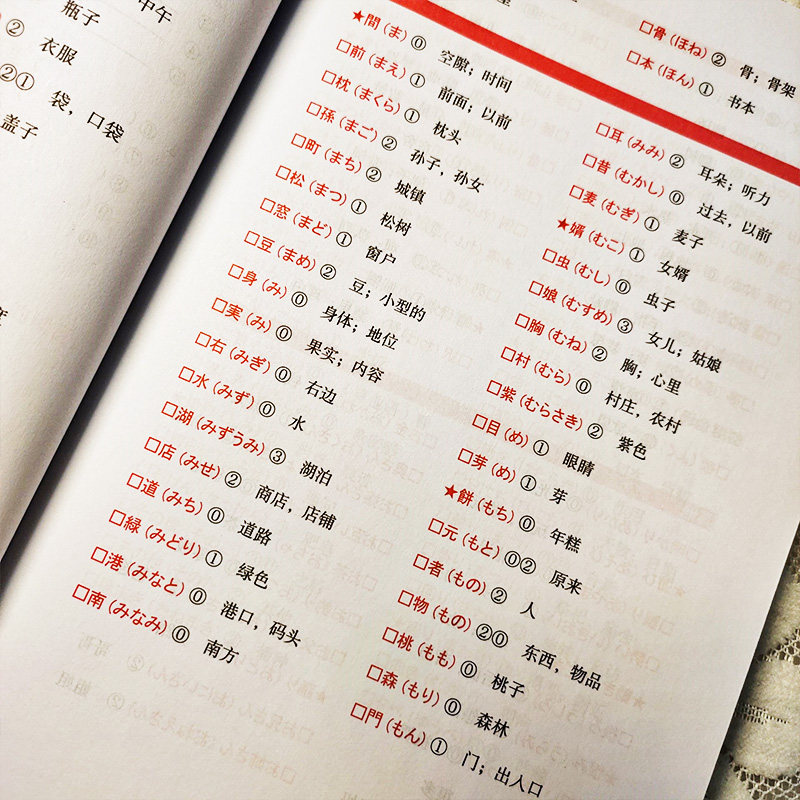 中午
② 瓶子
② 衣服
②① 袋，口袋
盖子
★間（ま）⓪ 空隙；时间
□前（まえ）① 前面；以前
□枕（まくら）① 枕头
□孫（まご）② 孙子，孙女
□町（まち）② 城镇
□松（まつ）① 松树
□窓（まど）① 窗户
□豆（まめ）② 豆；小型的
□身（み）⓪ 身体；地位
□実（み）⓪ 果实；内容
□右（みぎ）⓪ 右边
□水（みず）⓪ 水
□湖（みずうみ）③ 湖泊
□店（みせ）② 商店，店铺
□道（みち）⓪ 道路
□緑（みどり）① 绿色
□港（みなと）⓪ 港口，码头
□南（みなみ）⓪ 南方
□骨（ほね）② 骨；骨架
□本（ほん）① 书本
□耳（みみ）② 耳朵；听力
□昔（むかし）⓪ 过去，以前
□麦（むぎ）① 麦子
★婿（むこ）① 女婿
□虫（むし）⓪ 虫子
□娘（むすめ）③ 女儿；姑娘
□胸（むね）② 胸；心里
□村（むら）⓪ 村庄，农村
□紫（むらさき）② 紫色
□目（め）① 眼睛
□芽（め）① 芽
★餅（もち）⓪ 年糕
□元（もと）⓪② 原来
□者（もの）② 人
□物（もの）②⓪ 东西，物品
□桃（もも）⓪ 桃子
□森（もり）⓪ 森林
□門（もん）① 门；出入口